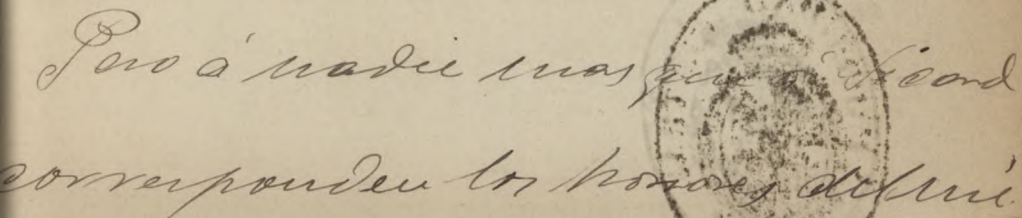 Pero á nadie mas que á Ricord
corresponden los honores del mé